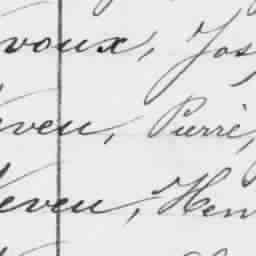 voux, Jos
eveu, Pierre,
eveu, Hen